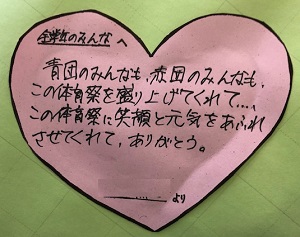 全学年のみんなへ
青団のみんなも、赤団のみんなも、
この体育祭を盛り上げてくれて…、
この体育祭に笑顔と元気をあふれ
させてくれて、ありがとう。
より